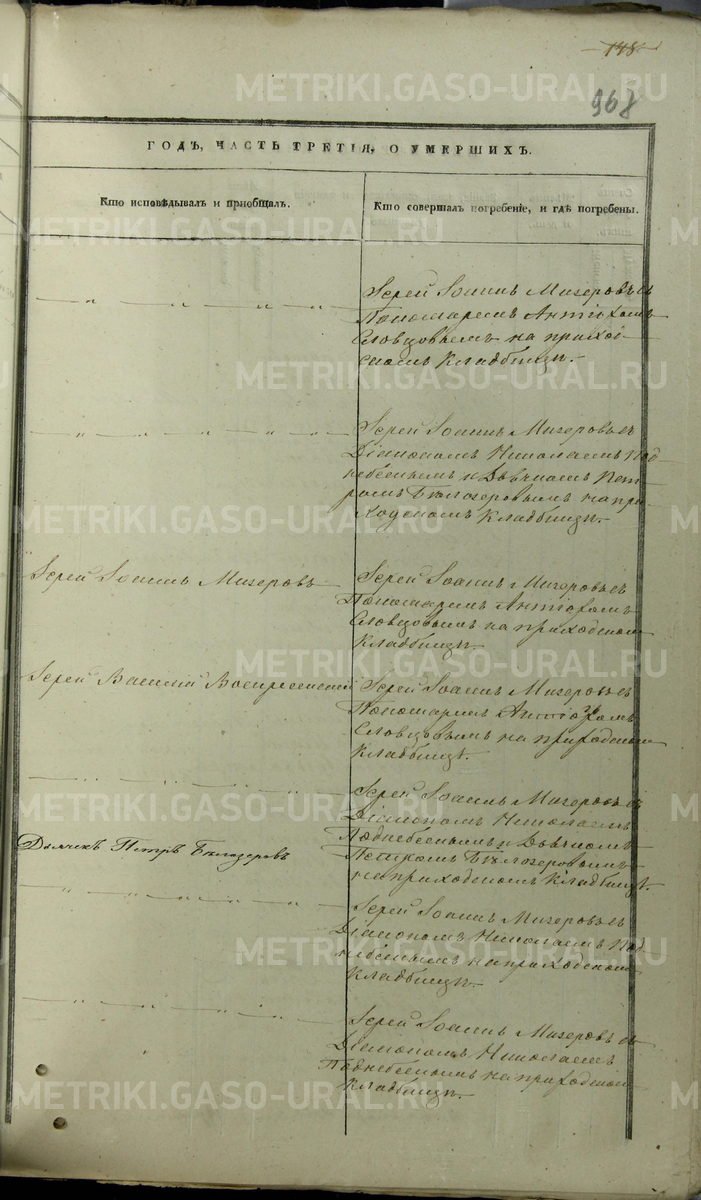 148
968
ГОДЪ, ЧАСТЬ ТРЕТІЯ, О УМЕРШИХЪ.
Кто исповѣдывалъ и пріобщалъ.
Кто совершалъ погребеніе, и гдѣ погребены.
Іерей Іоаннъ Мизеровъ съ
Пономаремъ Антіохомъ
Словцовымъ на приход-
скомъ кладбищѣ.
Іерей Іоаннъ Мизеровъ съ
Діакономъ Николаемъ Под-
небеснымъ и Дьячкомъ Пет-
ромъ Бѣлозеровымъ на при-
ходскомъ кладбищѣ.
Іерей Іоаннъ Мизеровъ
Іерей Іоаннъ Мизеровъ съ
Пономаремъ Антіохомъ
Словцовымъ на приходском
кладбищѣ.
Іерей Василій Воскресенскій
Іерей Іоаннъ Мизеровъ съ
Пономаремъ Антіохомъ
Словцовымъ на приходском
кладбищѣ.
Іерей Іоаннъ Мизеровъ съ
Діакономъ Николаемъ
Поднебеснымъ и Дьячкомъ
Дьячекъ Петръ Бѣлозеровъ
Петромъ Бѣлозеровымъ
на приходскомъ кладбищѣ.
Іерей Іоаннъ Мизеровъ съ
Діакономъ Николаемъ Под-
небеснымъ на приходском
кладбищѣ.
Іерей Іоаннъ Мизеровъ съ
Діакономъ Николаемъ
Поднебеснымъ на приходском
кладбищѣ.
METRIKI.GASO-URAL.RU